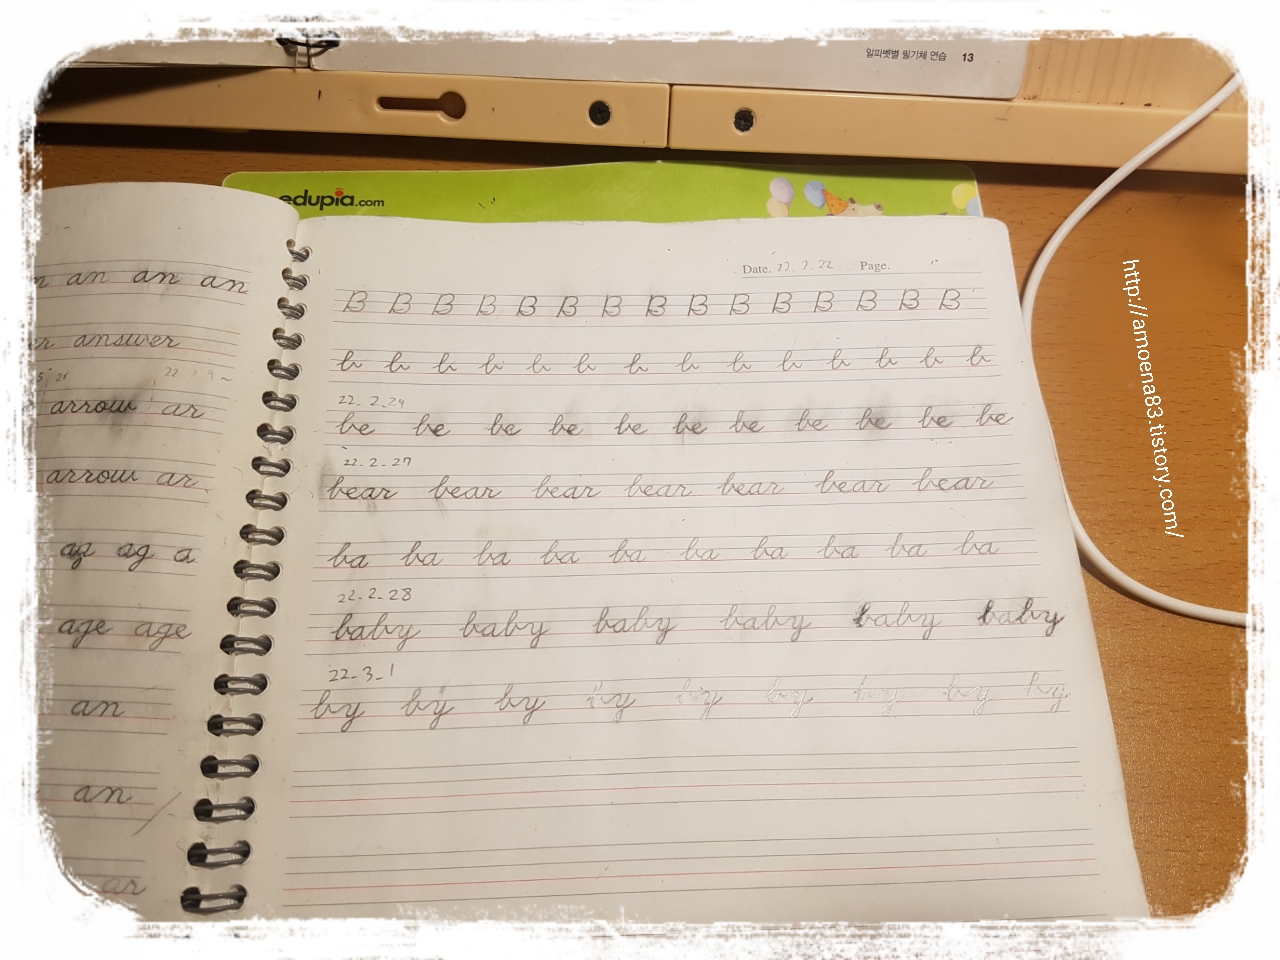 일파벳별 필기체 연습 13
edupia.com
an an an
answer
arrow ar
arrow ar
ag ag a
age age
an
an
ar
Date. 22. 2. 22 Page.
B B B B B B B B B B B B B B B
b b b b b b b b b b b b b b
22_2_24
be be be be be be be be be be be
22-2-27
bear bear bear bear bear bear bear
ba ba ba ba ba ba ba ba ba ba
22-2-28
baby baby baby baby baby baby
22-3-1
by by by by by by by by by
http://amoena83.tistory.com/